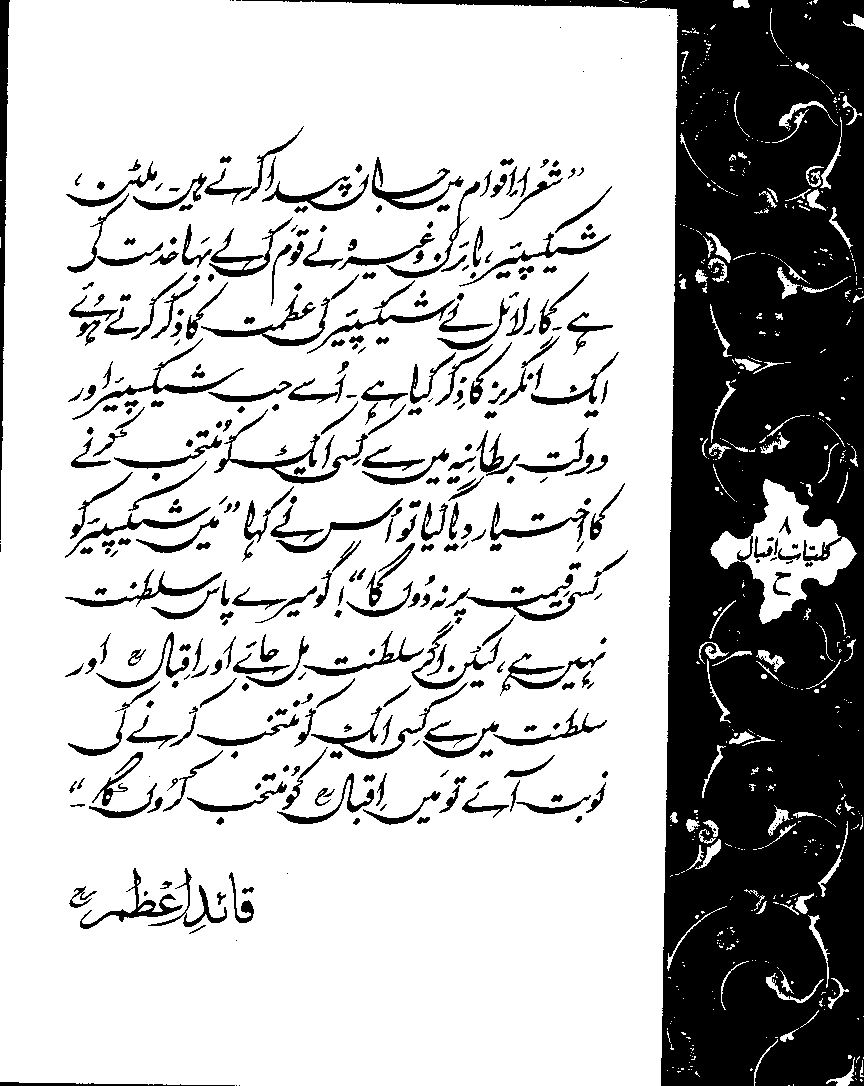 ”شعراء اقوام میں جان پیدا کرتے ہیں۔ ملٹن،
شیکسپیئر، بائرن وغیرہ نے قوم کی بے بہا خدمت کی
ہے۔ کارلائل نے شیکسپیئر کی عظمت کا ذکر کرتے ہوئے
ایک انگریز کا ذکر کیا ہے۔ اُسے جب شیکسپیئر اور
دولتِ برطانیہ میں سے کسی ایک کو منتخب کرنے
کا اختیار دیا گیا تو اُس نے کہا ”میَں شیکسپیئر کو
کسی قیمت پر نہ دُوں گا“! گو میرے پاس سلطنت
نہیں ہے، لیکن اگر سلطنت مِل جائے اور اقبالؒ اور
سلطنت میں سے کسی ایک کو منتخب کرنے کی
نوبت آئے تو میَں اِقبالؒ کو منتخب کروں گا۔“
قائدِاعظمؒ
۸
کلیاتِ اقبال
ح